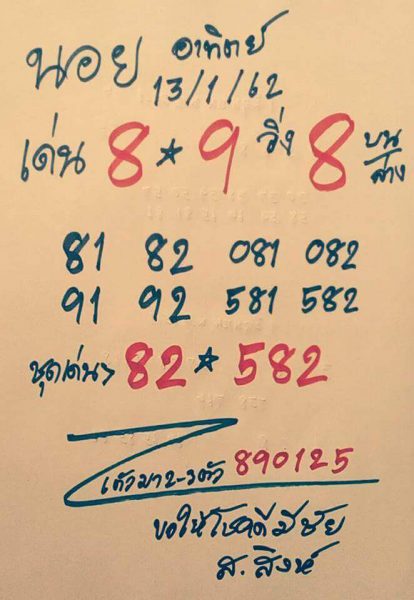 นอย อาทิตย์
13/1/62
เด่น 8 * 9 วิ่ง 8 บน/ล่าง
81 82 081 082
91 92 581 582
ชุดเด่น> 82 * 582
เต๋วมา 2-3 ตัว 890125
ขอให้โชคดีมีชัย
ส. สิงห์